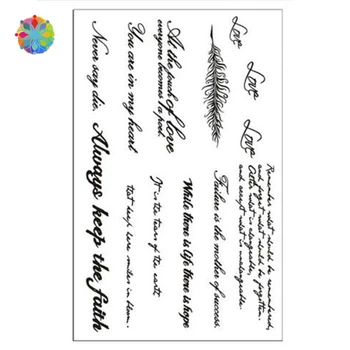 Love
Love
Love
At the touch of love
everyone becomes a poet
You are in my heart
Never say die.
Remember what should be remembered,
and forget what should be forgotten.
Alter what is changeable,
and accept what is unchangeable.
Failure is the mother of success.
While there is life there is hope
It is the tears of the earth
that keep here smiles in bloom.
Always keep the faith